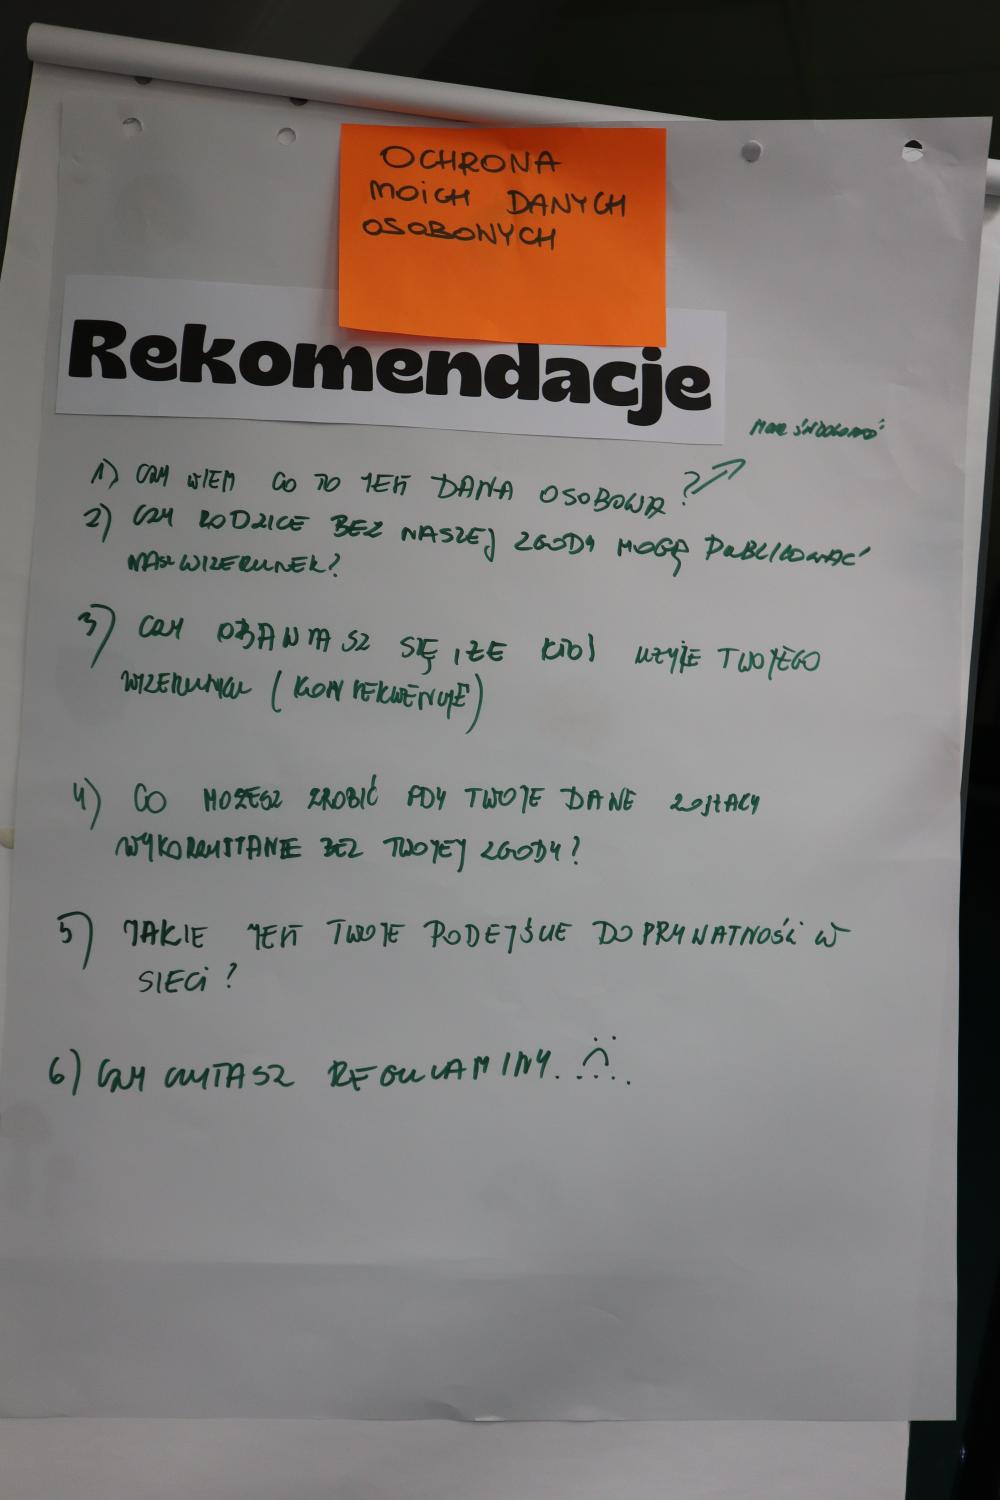 OCHRONA
MOICH DANYCH
OSOBOWYCH
Rekomendacje
1) CZY WIEM CO TO JEST DANA OSOBOWA?
2) CZY RODZICE BEZ NASZEJ ZGODY MOGĄ PUBLIKOWAĆ
NASZ WIZERUNEK?
3) CZY OBAWIASZ SIĘ, ŻE KTOŚ UŻYJE TWOJEGO
WIZERUNKU (KONSEKWENCJE)
4) CO MOŻESZ ZROBIĆ GDY TWOJE DANE ZOSTAŁY
WYKORZYSTANE BEZ TWOJEJ ZGODY?
5) JAKIE JEST TWOJE PODEJŚCIE DO PRYWATNOŚCI W
SIECI?
6) CZY CZYTASZ REGULAMINY